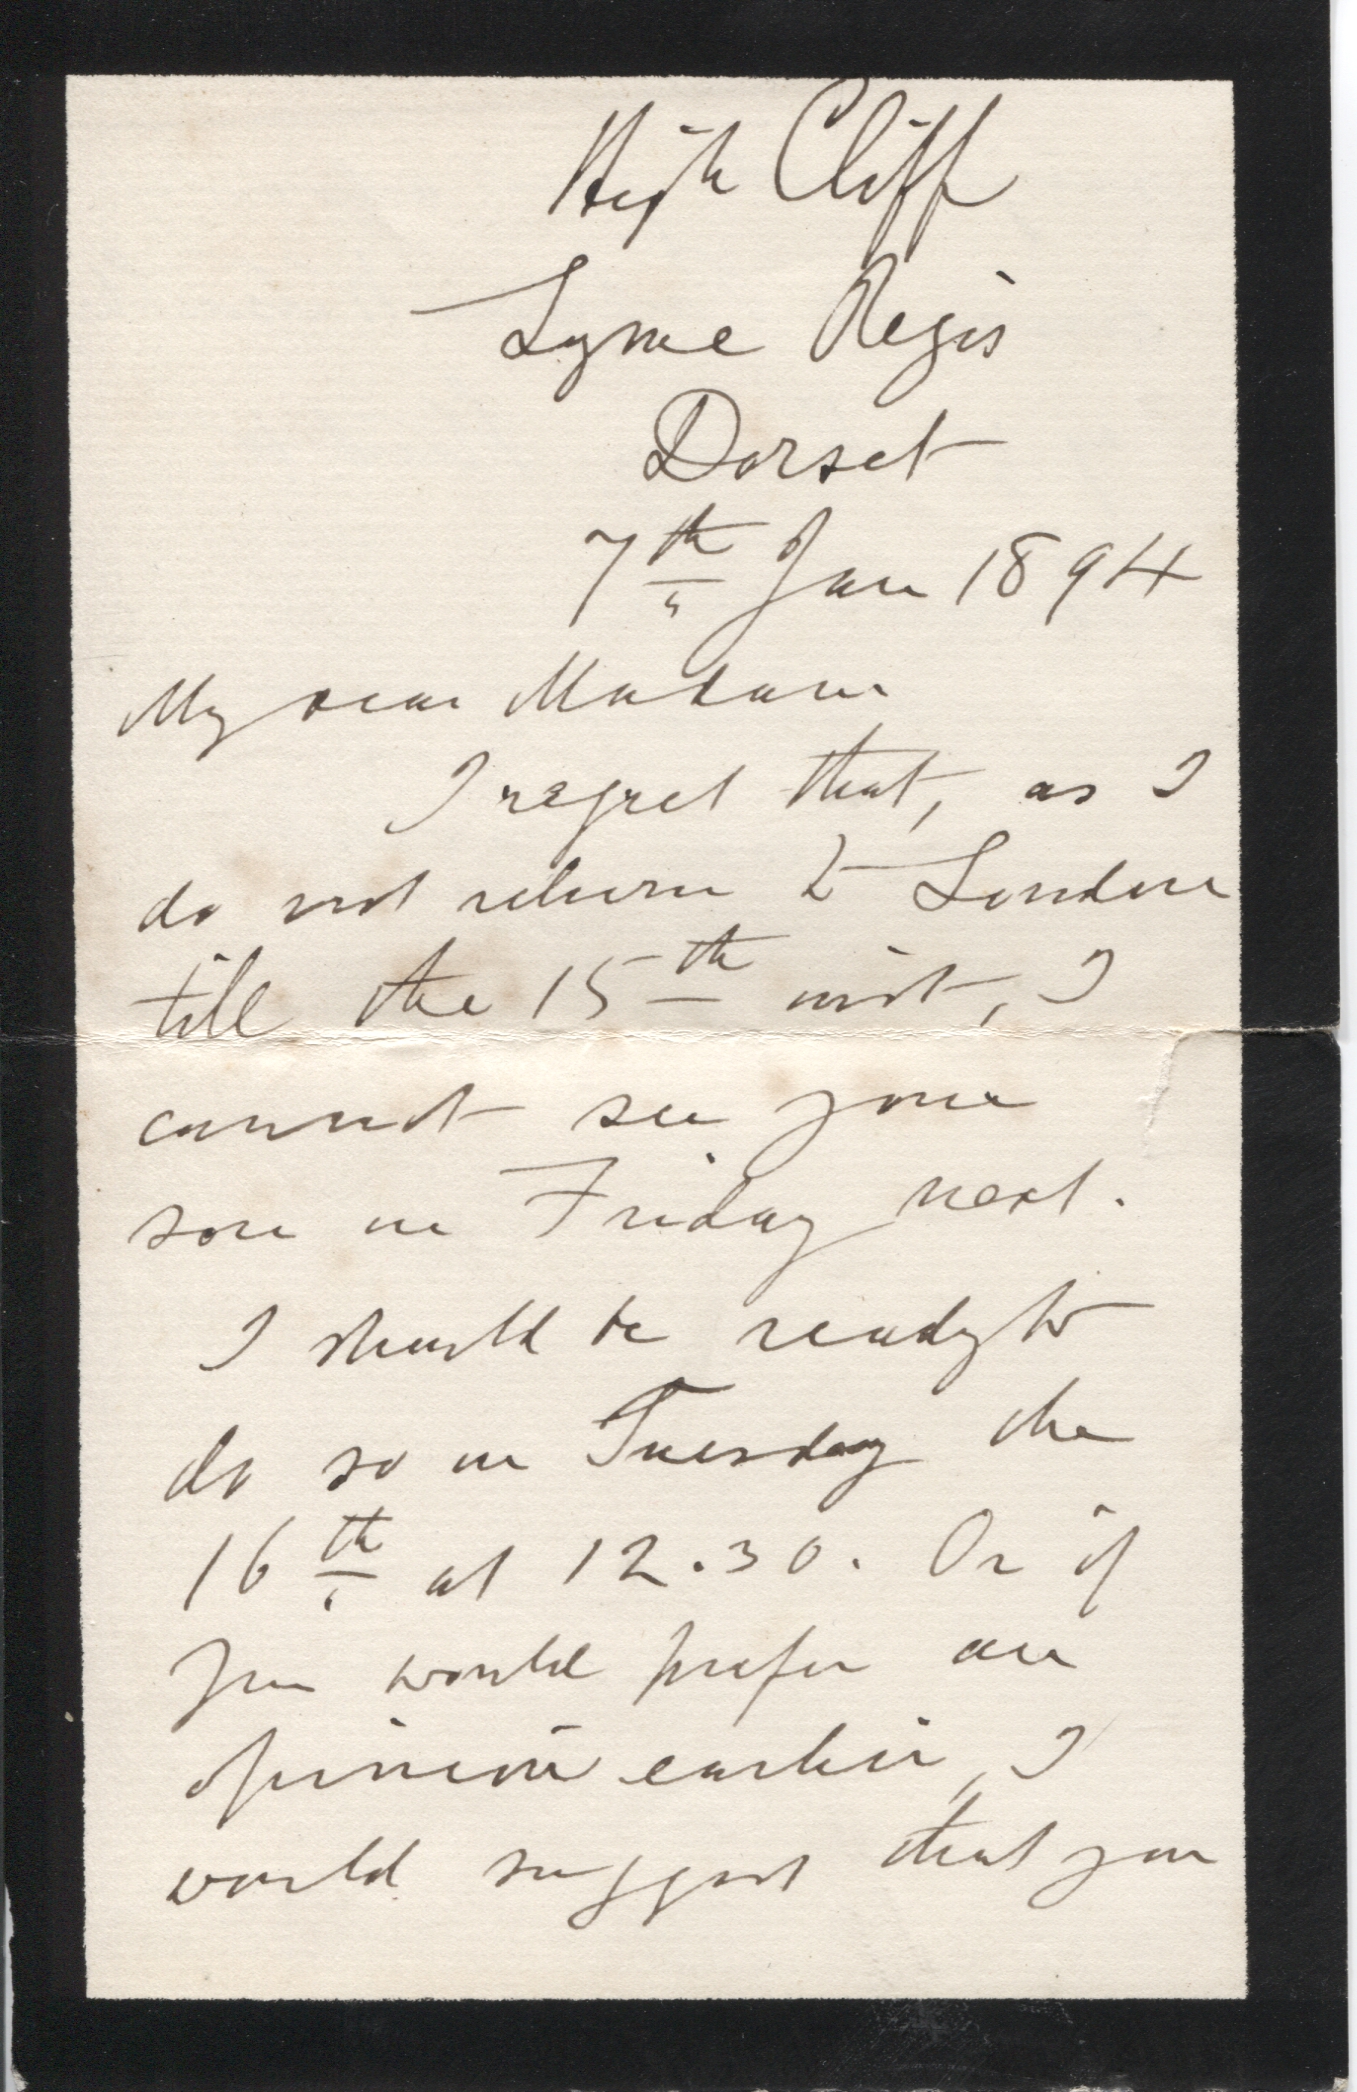 High Cliff
Lyme Regis
Dorset
7th Jan 1894
My dear Madam
I regret that, as I
do not return to London
till the 15th inst, I
cannot see your
son on Friday next.
I should be ready to
do so on Tuesday the
16th at 12.30. Or if
you would prefer an
opinion earlier, I
would suggest that you